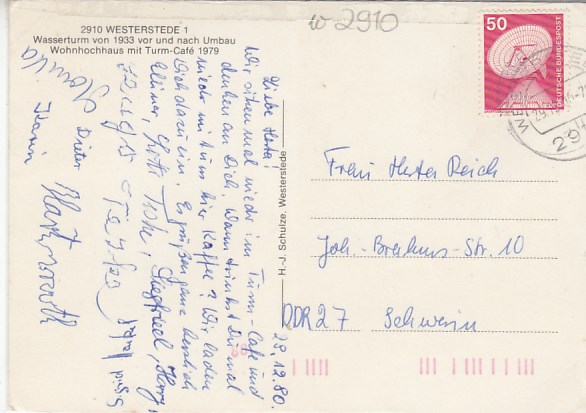 w 2910
2910 WESTERSTEDE 1
Wasserturm von 1933 vor und nach Umbau
Wohnhochhaus mit Turm-Café 1979
50
DEUTSCHE BUNDESPOST
29
29.12.80.
Liebe Herta!
Wir sitzen mal wieder im Turm-Café und
denken an Dich. Wann trinkst Du mal
wieder mit uns hier Kaffee? Wir laden
Dich dazu ein. Es grüßen ganz herzlich
Siegfried, Harry,
Dieter
Karin
H.-J. Schulze, Westerstede
Frau Herta Reich
Joh.-Brahms-Str. 10
DDR 27 Schwerin